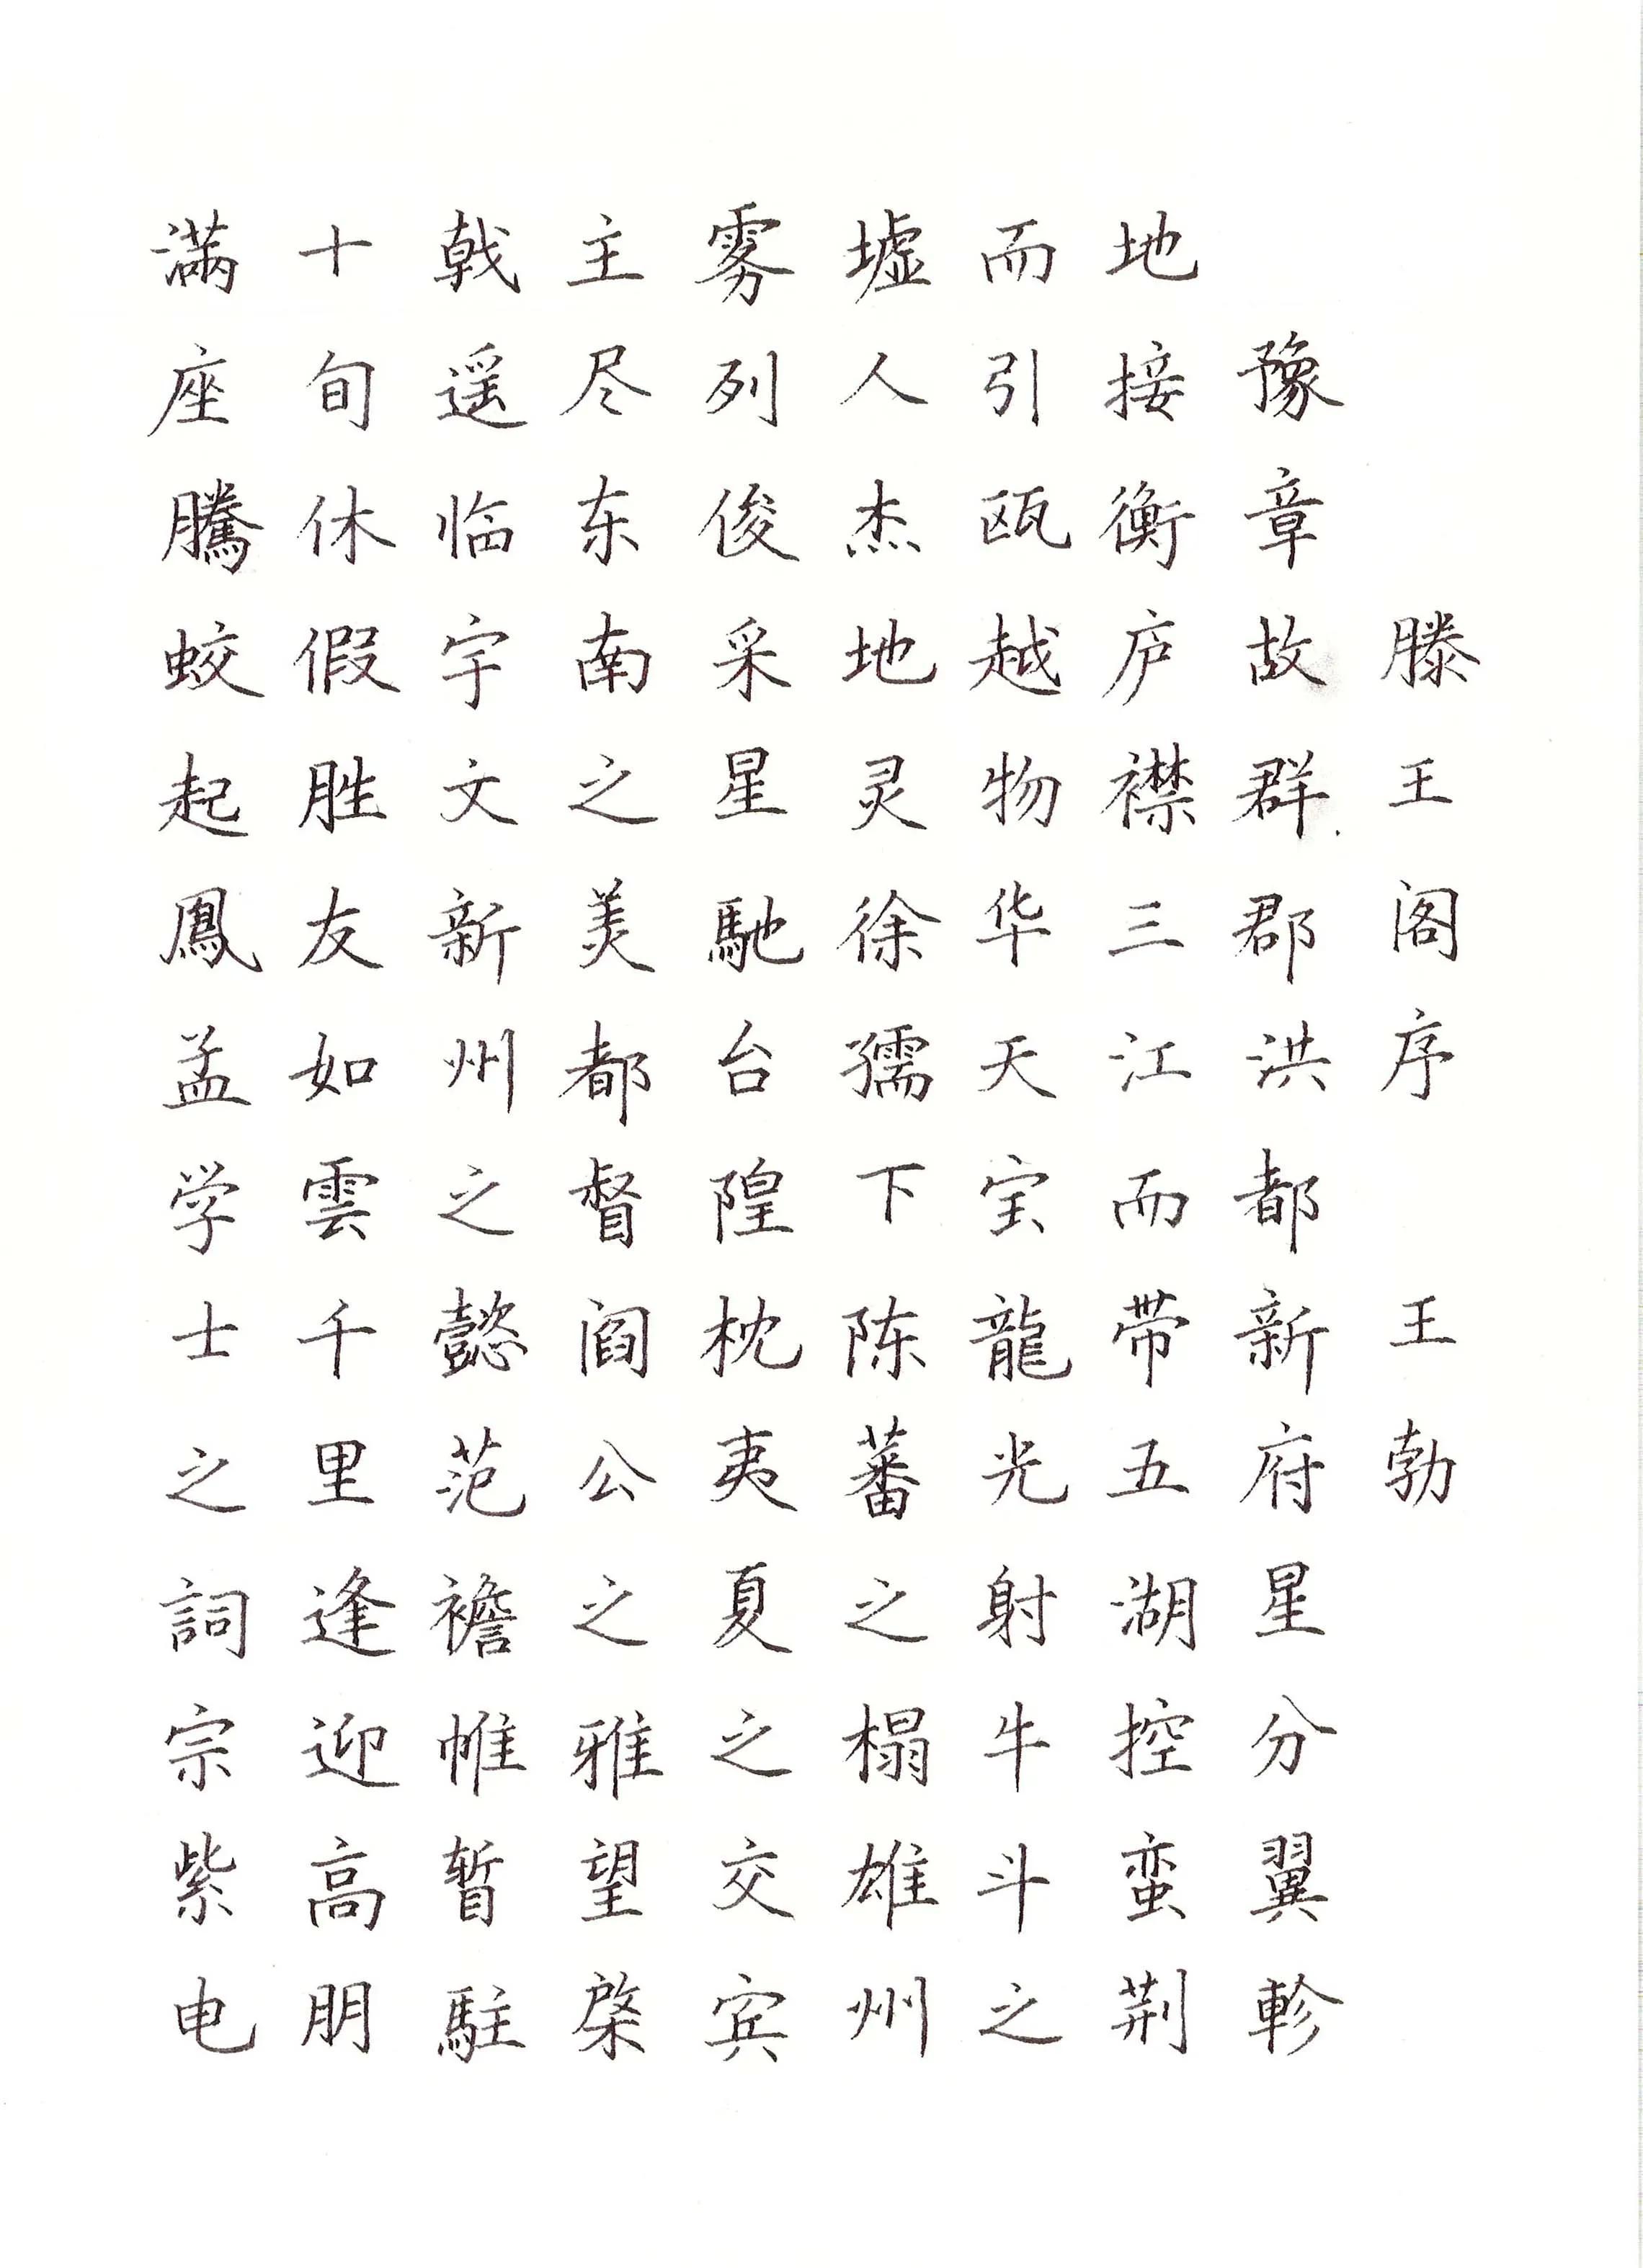 滕王阁序 王勃
豫章故群郡洪都新府星分翼軫
地接衡庐襟三江而带五湖控蛮荆
而引瓯越物华天宝龍光射牛斗之
墟人杰地灵徐孺下陈蕃之榻雄州
雾列俊采星馳台隍枕夷夏之交宾
主尽东南之美都督阎公之雅望棨
戟遥临宇文新州之懿范襜帷暂駐
十旬休假胜友如雲千里逢迎高朋
满座騰蛟起鳳孟学士之詞宗紫电